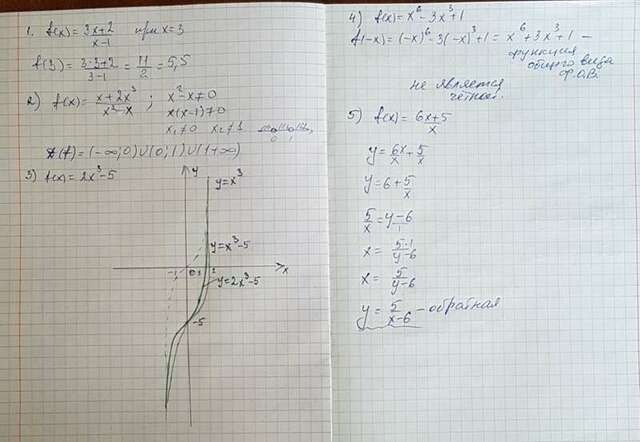 1. f(x) = 3x+2 / x-1 при x=3
f(3) = 3·3+2 / 3-1 = 11 / 2 = 5,5
2) f(x) = x+2x³ / x²-x ; x²-x≠0
x(x-1)≠0
x₁≠0 x₂≠1
(f) = (-∞;0)∪(0;1)∪(1+∞)
3) f(x) = 2x³-5
y
y=x³
y=x³-5
-1 0 1 x
y=2x³-5
-5
4) f(x) = x⁶-3x³+1
f(-x) = (-x)⁶-3(-x)³+1 = x⁶+3x³+1 –
функция
общего вида
Ф.О.В.
не является
чётной.
5) f(x) = 6x+5 / x
y = 6x / x + 5 / x
y = 6 + 5 / x
5 / x = y-6 / 1
x = 5·1 / y-6
x = 5 / y-6
y = 5 / x-6 – обратная